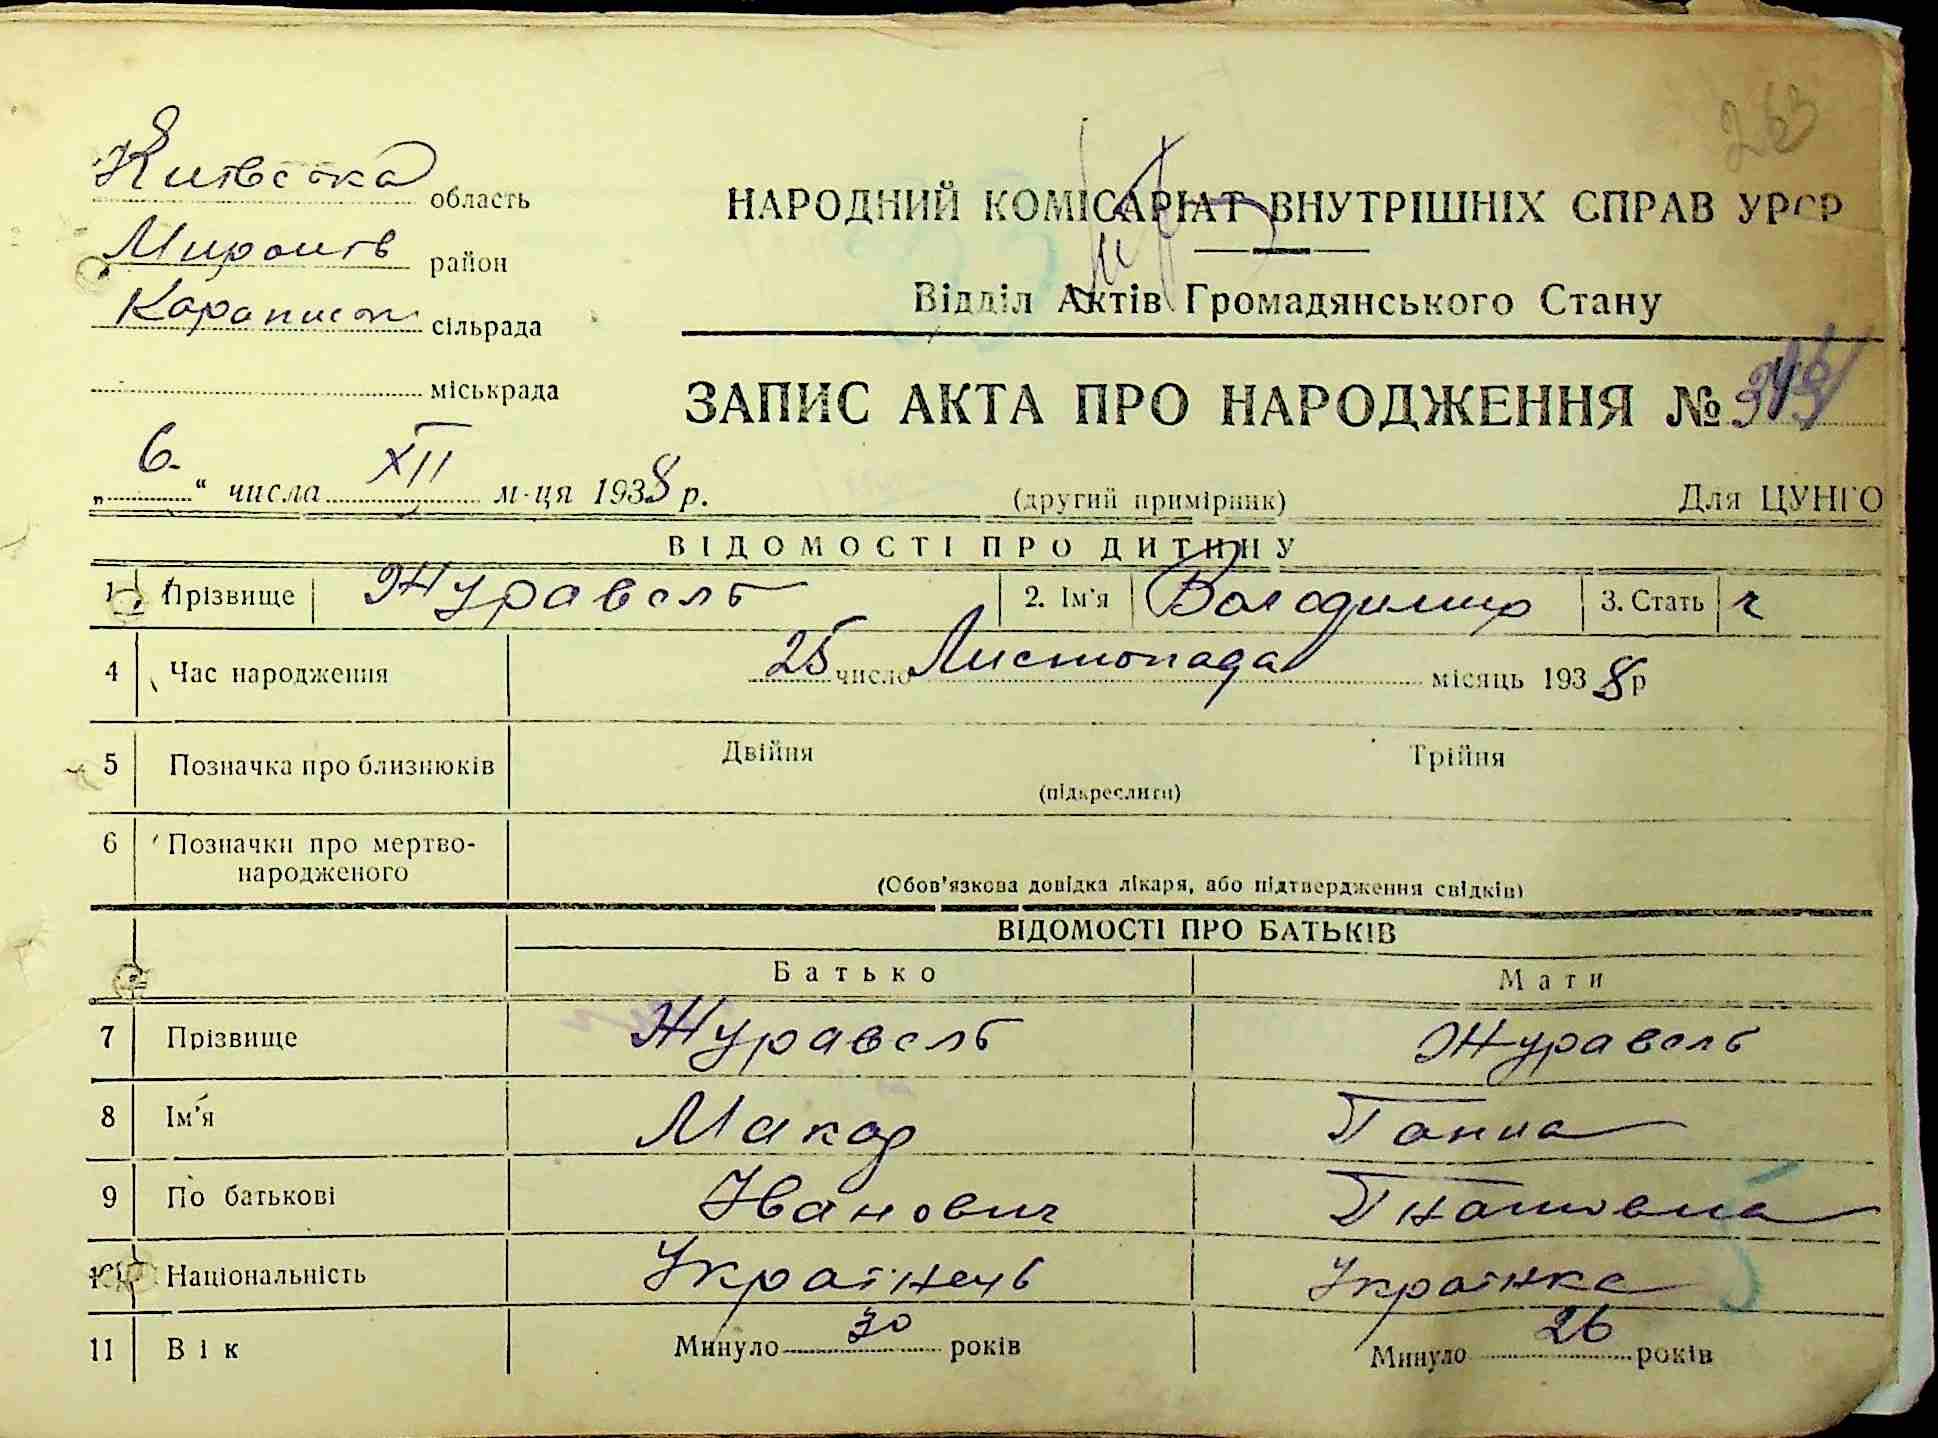 263
Київська область
НАРОДНИЙ КОМІСАРІАТ ВНУТРІШНІХ СПРАВ УРСР
Миронів район
Відділ Актів Громадянського Стану
Карапиш сільрада
міськрада
ЗАПИС АКТА ПРО НАРОДЖЕННЯ №
„ 6. “ числа XII м-ця 1938 р.
(другий примірник)
Для ЦУНГО
ВІДОМОСТІ ПРО ДИТИНУ
1 Прізвище Журавель 2. Ім'я Володимир 3. Стать ч
4 Час народження 25 число Листопада місяць 1938 р
5 Позначка про близнюків Двійня Трійня
(підкреслити)
6 Позначки про мертво-
народженого
(Обов'язкова довідка лікаря, або підтвердження свідків)
ВІДОМОСТІ ПРО БАТЬКІВ
Батько Мати
7 Прізвище Журавель Журавель
8 Ім'я Макар Ганна
9 По батькові Іванович Гнатовна
10 Національність Українець Українка
11 Вік Минуло 30 років Минуло 26 років